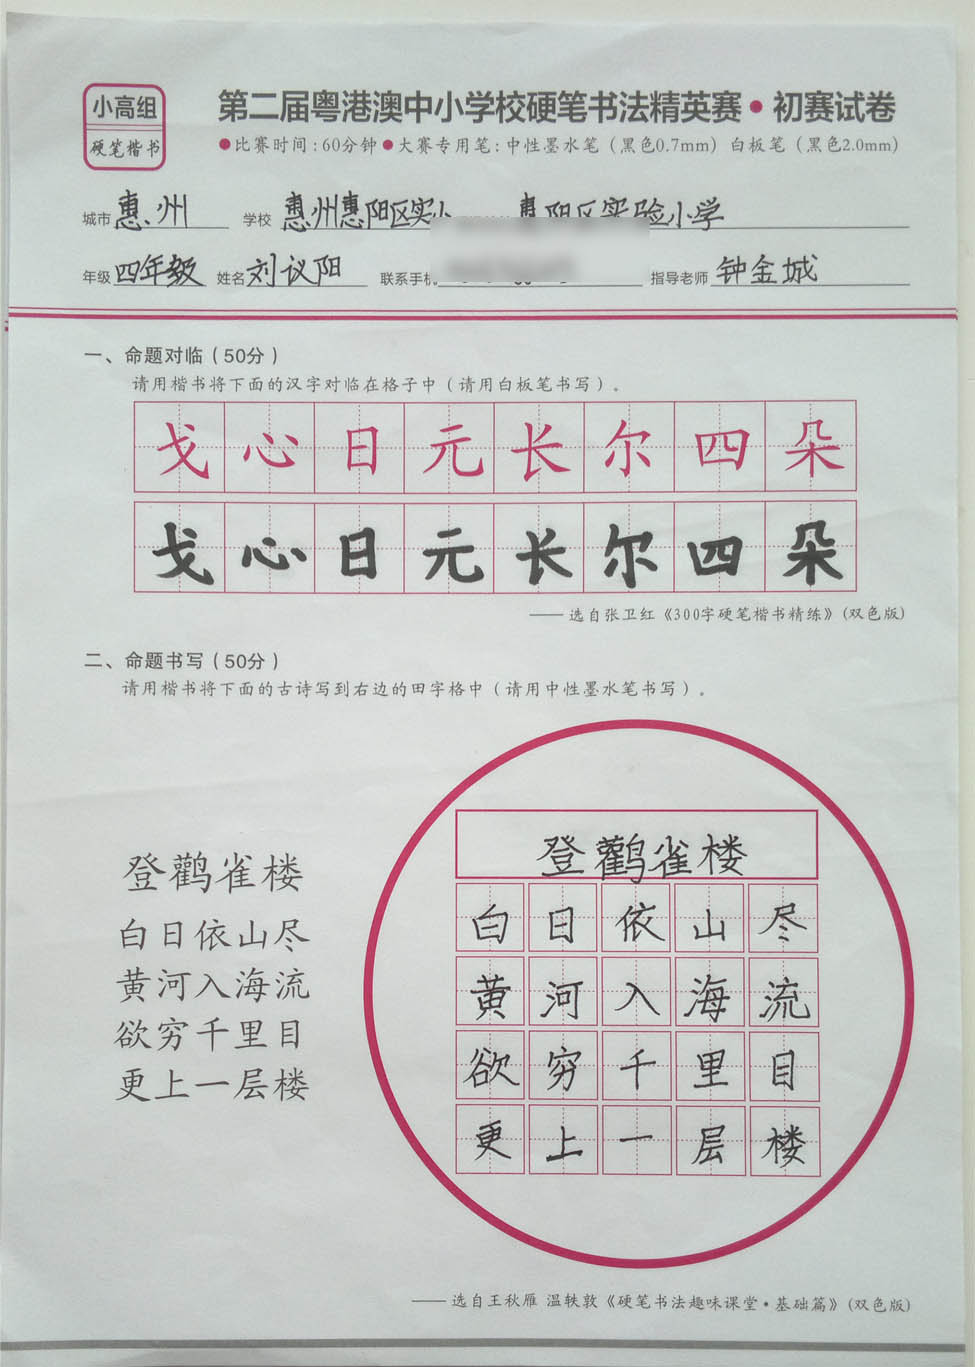 小高组
硬笔楷书
第二届粤港澳中小学校硬笔书法精英赛•初赛试卷
●比赛时间:60分钟●大赛专用笔:中性墨水笔（黑色0.7mm）白板笔（黑色2.0mm）
城市 惠州 学校 惠州惠阳区实小 惠阳区实验小学
年级 四年级 姓名 刘议阳 联系手机 指导老师 钟金城
一、命题对临（50分）
请用楷书将下面的汉字对临在格子中（请用白板笔书写）。
戈心日元长尔四朵
戈心日元长尔四朵
—— 选自张卫红《300字硬笔楷书精练》(双色版)
二、命题书写（50分）
请用楷书将下面的古诗写到右边的田字格中（请用中性墨水笔书写）。
登鹳雀楼
白日依山尽
黄河入海流
欲穷千里目
更上一层楼
登鹳雀楼
白日依山尽
黄河入海流
欲穷千里目
更上一层楼
—— 选自王秋雁 温轶敦《硬笔书法趣味课堂·基础篇》(双色版)